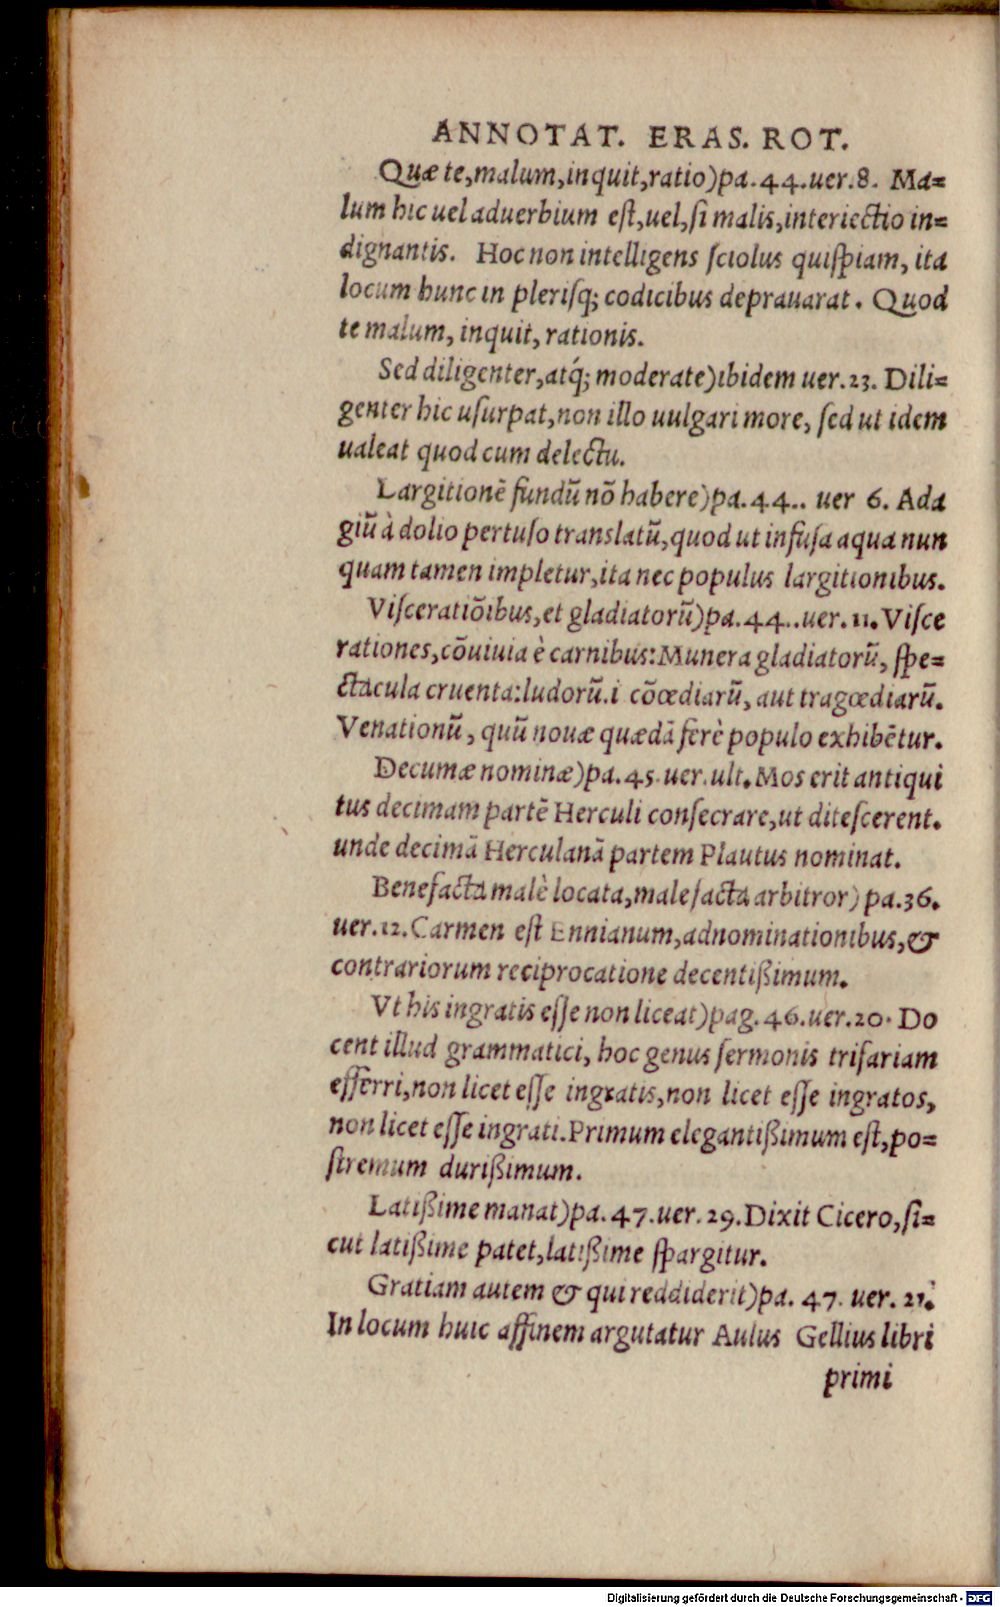 ANNOTAT. ERAS. ROT.
Quæ te, malum, inquit, ratio) pa. 44. uer. 8. Ma=
lum hic uel aduerbium est, uel, si malis, interiectio in=
dignantis. Hoc non intelligens sciolus quispiam, ita
locum hunc in plerisq; codicibus deprauarat. Quod
te malum, inquit, rationis.
Sed diligenter, atq́; moderate) ibidem uer. 23. Dili=
genter hic usurpat, non illo uulgari more, sed ut idem
ualeat quod cum delectu.
Largitionē fundū nō habere) pa. 44.. uer 6. Ada
giū à dolio pertuso translatū, quod ut infusa aqua nun
quam tamen impletur, ita nec populus largitionibus.
Visceratiōibus, et gladiatorū) pa. 44.. uer. 11. Visce
rationes, cōuiuia è carnibus: Munera gladiatorū, spe=
ctacula cruenta: ludorū. i cōœdiarū, aut tragœdiarū.
Venationū, quū nouæ quædā ferè populo exhibētur.
Decumæ nominæ) pa. 45. uer. ult. Mos erit antiqui
tus decimam partē Herculi consecrare, ut ditescerent.
unde decimā Herculanā partem Plautus nominat.
Benefacta malè locata, malefacta arbitror) pa. 36.
uer. 12. Carmen est Ennianum, adnominationibus, &
contrariorum reciprocatione decentißimum.
Vt his ingratis esse non liceat) pag. 46. uer. 20. Do
cent illud grammatici, hoc genus sermonis trifariam
efferri, non licet esse ingratis, non licet esse ingratos,
non licet esse ingrati. Primum elegantißimum est, po=
stremum durißimum.
Latißime manat) pa. 47. uer. 29. Dixit Cicero, si=
cut latißime patet, latißime spargitur.
Gratiam autem & qui reddiderit) pa. 47. uer. 21.
In locum huic affinem argutatur Aulus Gellius libri
primi
Digitalisierung gefördert durch die Deutsche Forschungsgemeinschaft - DFG